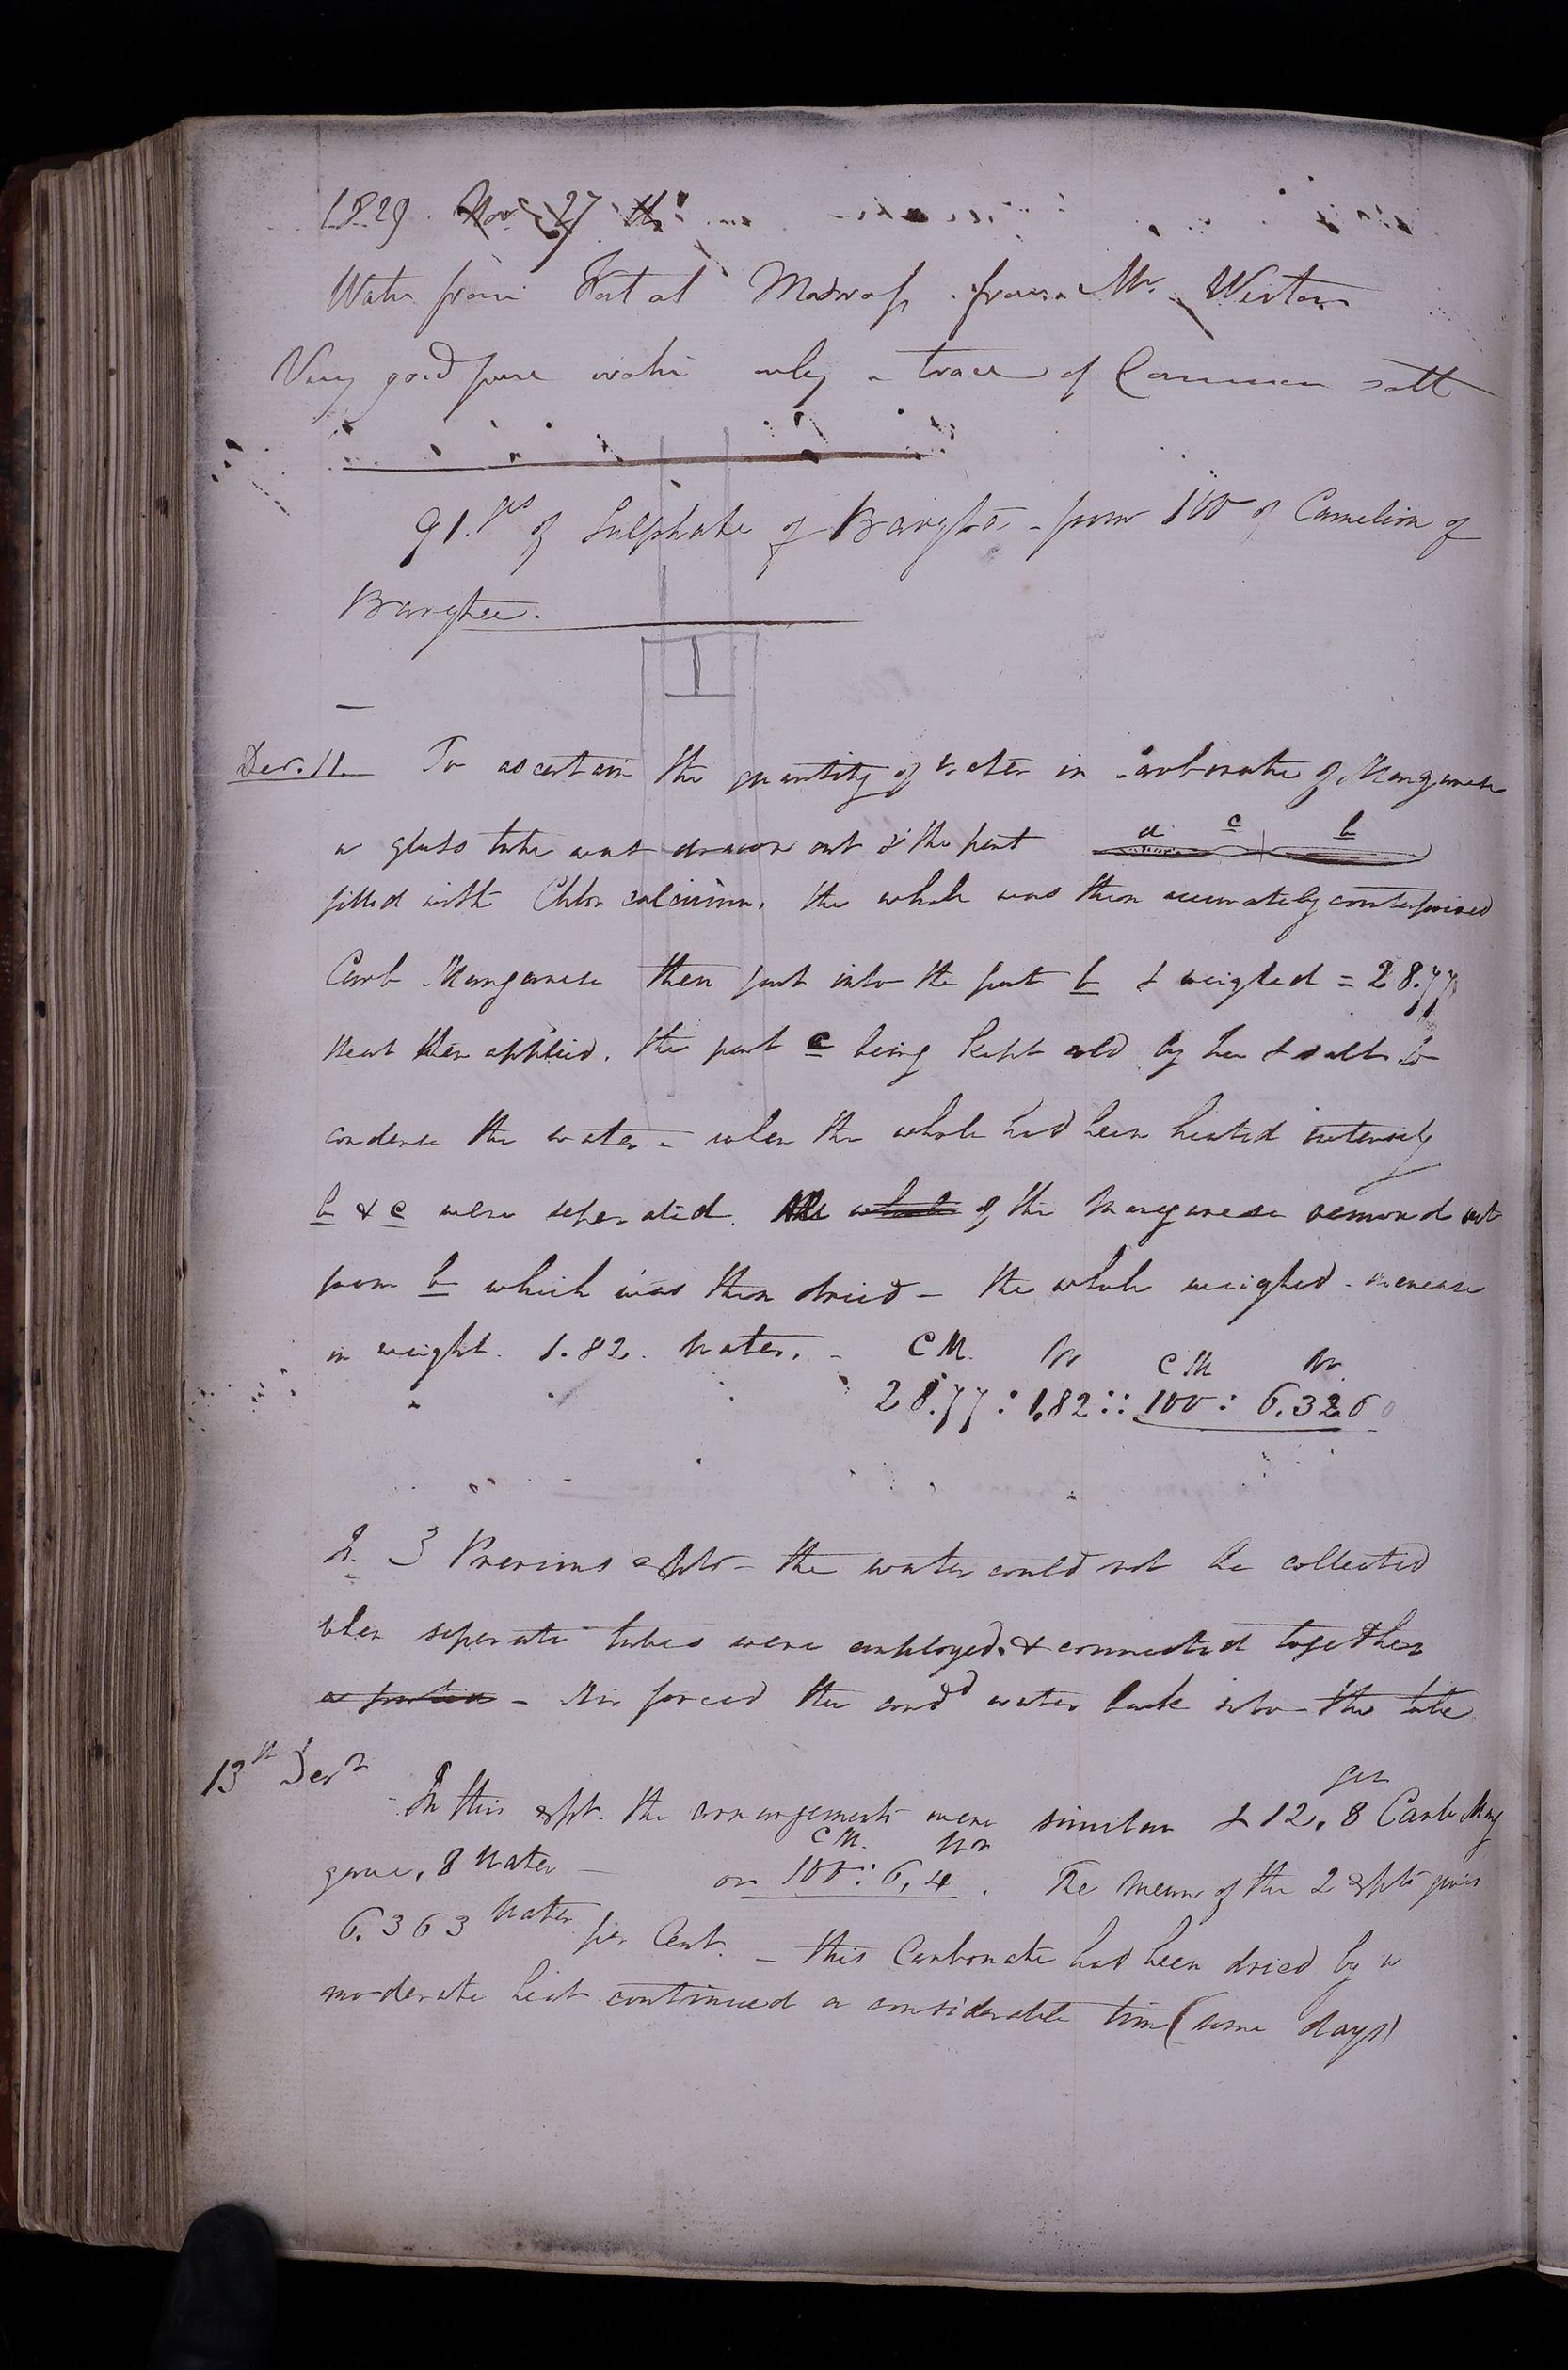 1829. Nov 27 th
Water from Fort at Madrass from Mr. Weston
Very good pure water only a trace of Common salt
91. grs of Sulphate of Baryta - from 100 of Camelion of
Barytee.
Dec. 11. To ascertain the quantity of water in Carbonate of Manganese
a glass tube was drawn out & the part
a c b
filled with Chlor calcium. the whole was then accurately counterpoised
Carb Manganese then put into the part b & weighed = 28.77
Heat then applied. the part c being kept cold by Ice & salt to
condense the water - when the whole had been heated intensely
b & c were seperated. the whole of the Manganese removed out
from b which was then dried - the whole weighed - increase
in weight. 1.82. Water. -
CM. W CM W
28.77 : 1.82 :: 100 : 6.3260
In 3 Previous expts - the water could not be collected
when seperate tubes were employed. & connected together
a portion - Air forced the condd water back into the tube
13th Decr In this expt. the arrangements were similar & 12.8 grs Carb Man
gave .8 Water - or CM. 100 : Wr 6.4. The mean of the 2 expts gives
6.363 Water per Cent. - this Carbonate had been dried by a
moderate heat continued a considerable time (some days)